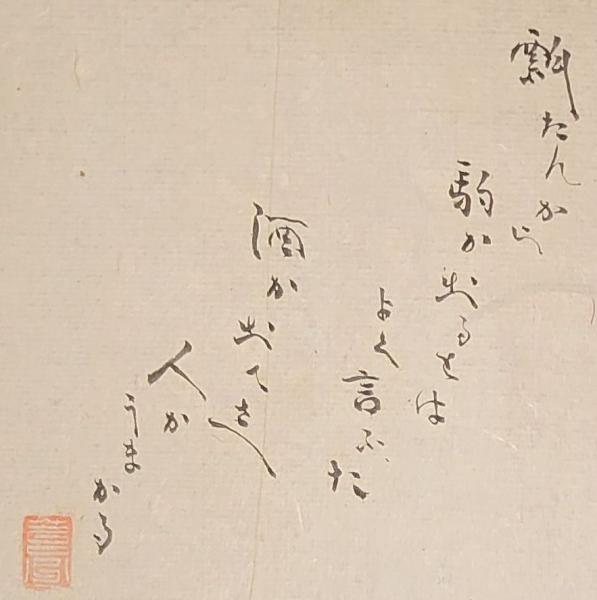 瓢たんから
駒か出るとは
よく言ふた
酒か出てさへ
人か
うまかる